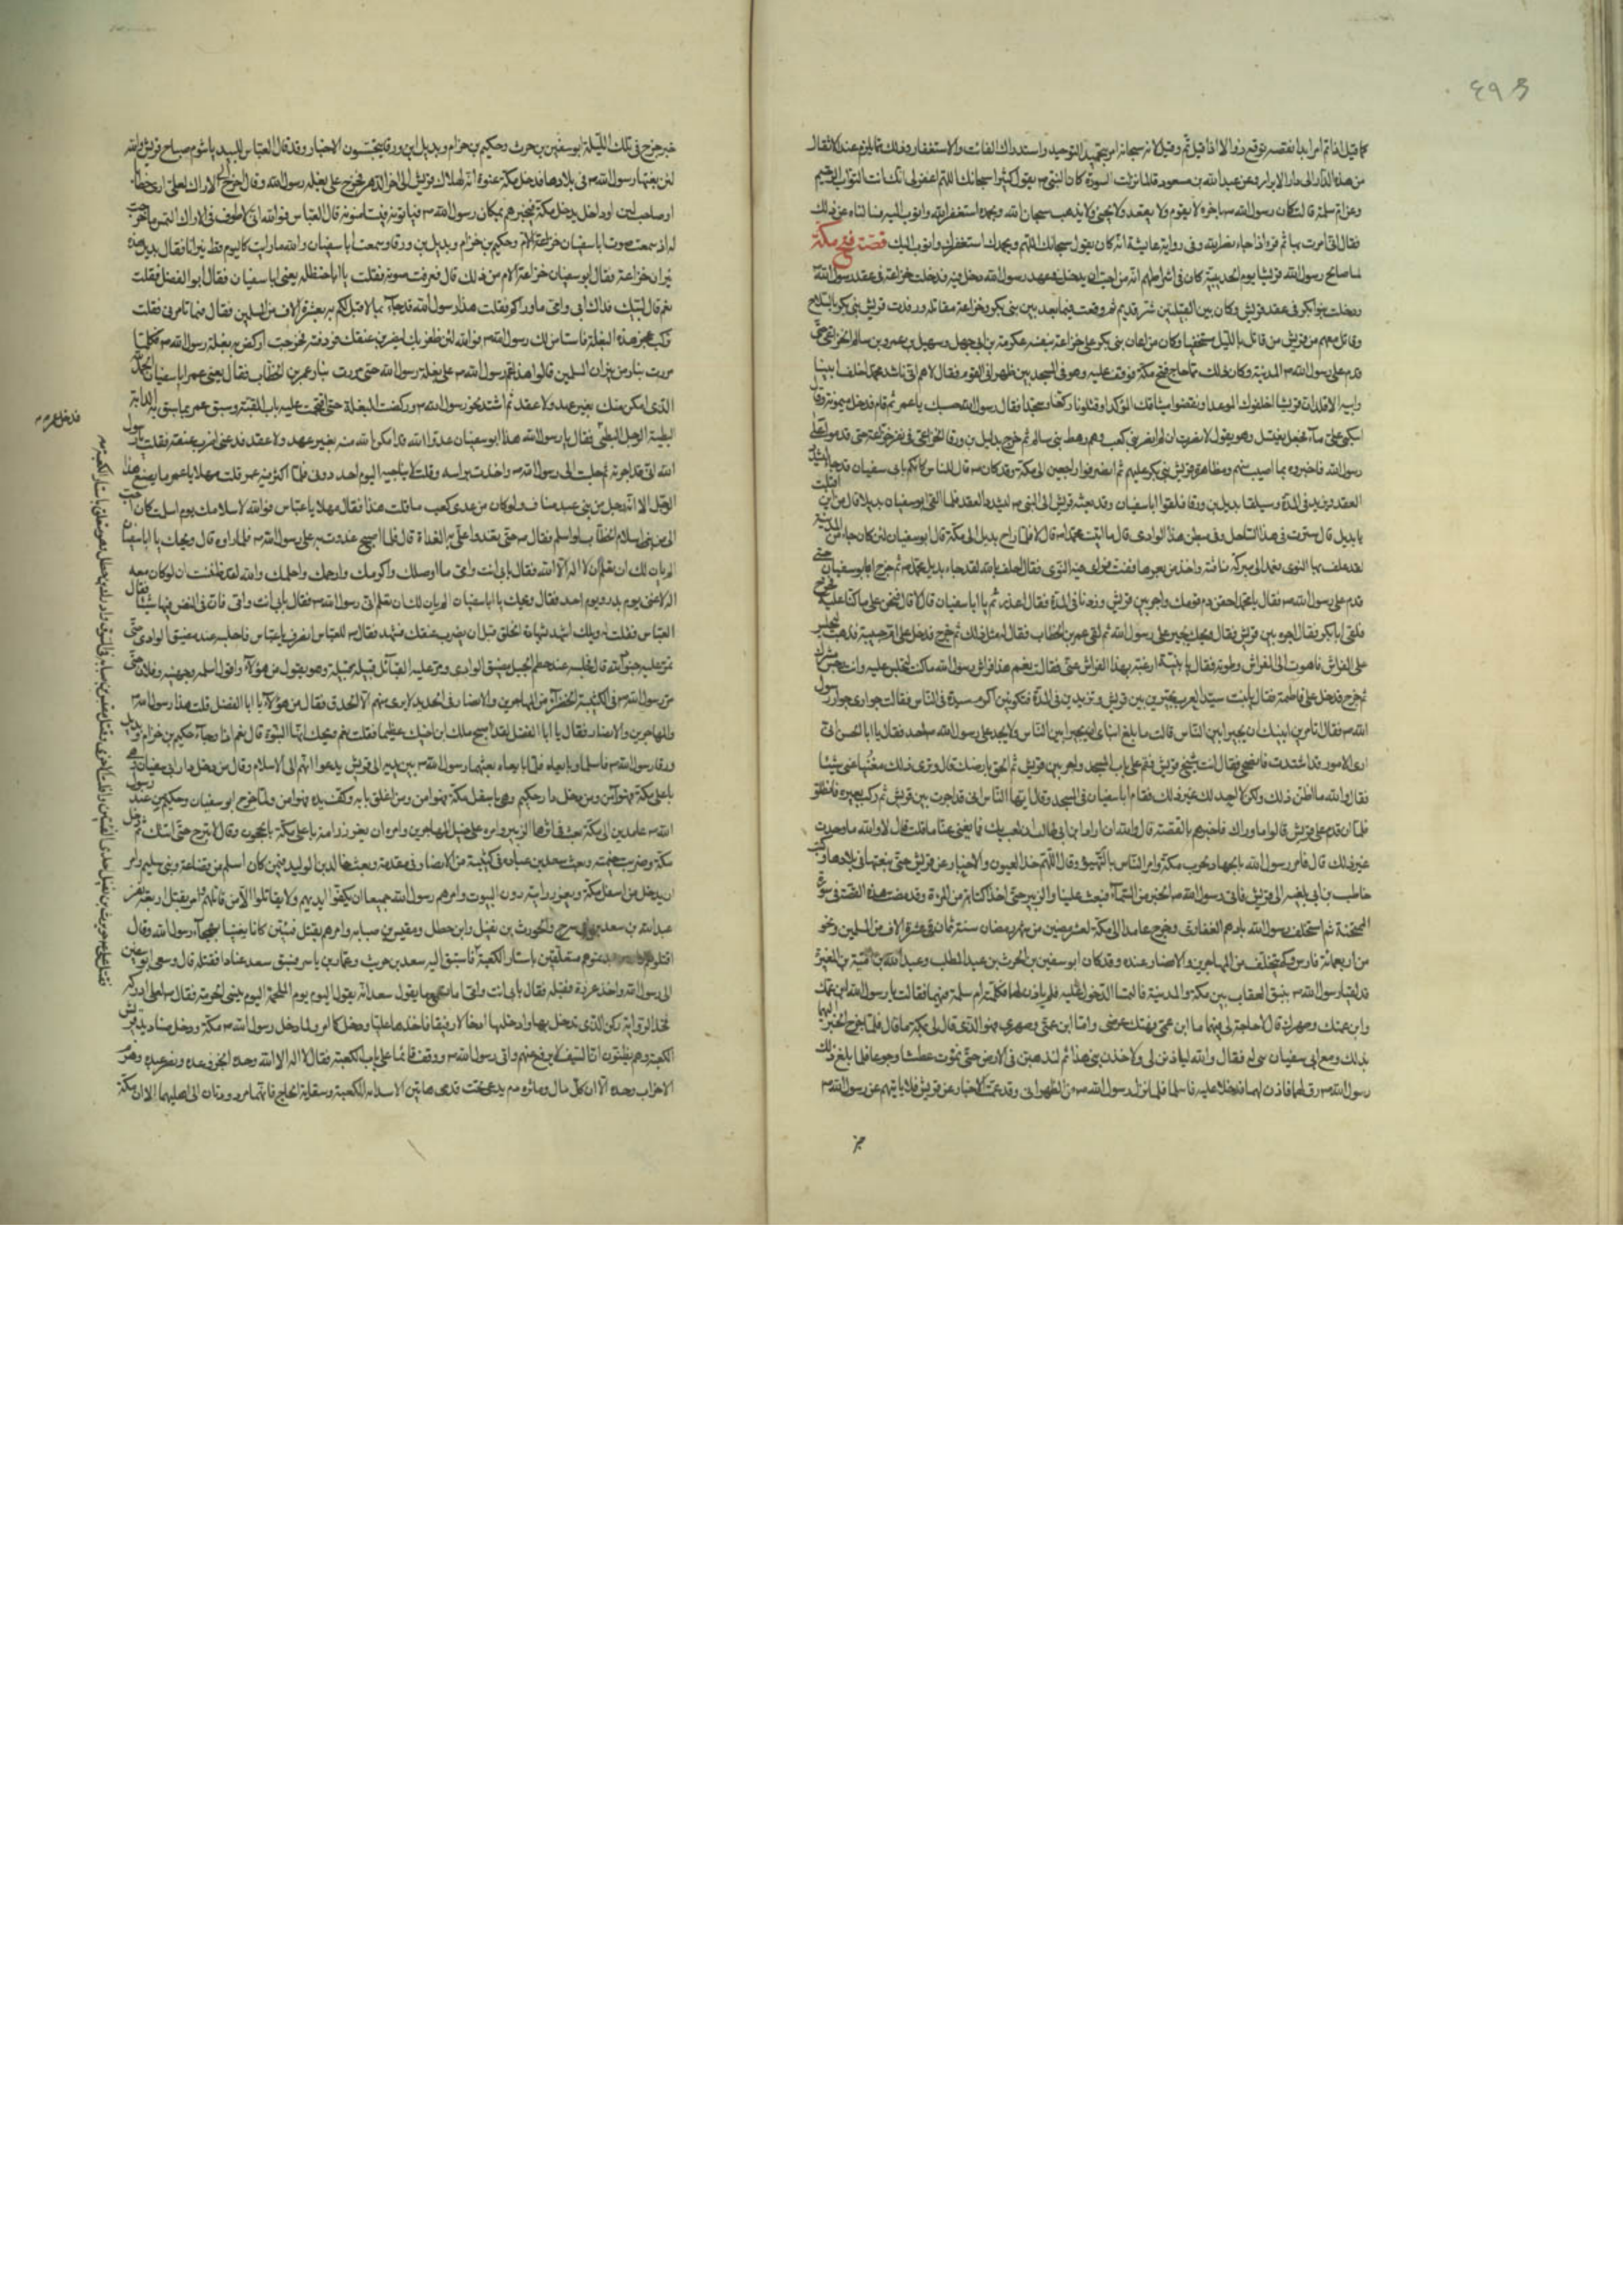 ٤٩٣
كما قيل اذا تم امر بدا نقصه توقع زوالا اذا قيل تم وقيل لانه سبحانه امره بتجديد التوحيد واستدراك الفائت والاستغفار وذلك مما يلزم عند الانتقال
من هذه الدار الى دار الابرار وعن عبد الله بن مسعود قال لما نزلت السورة كان النبي ص يقول كثيرا سبحانك اللهم اغفر لي انك انت التواب الرحيم
وعن ام سلمة قالت كان رسول الله ص باخره لا يقوم ولا يقعد ولا يجيئ ولا يذهب الا قال سبحان الله وبحمده استغفر الله واتوب اليه فسالناه عن ذلك
فقال اني امرت بها ثم قرء اذا جاء نصر الله وفي رواية عايشة انه كان يقول سبحانك اللهم وبحمدك استغفرك واتوب اليك قصة فتح مكة
لما صالح رسول الله قريشا يوم الحديبية كان في اشراطهم انه من احب ان يدخل في عهد رسول الله دخل فيه فدخلت خزاعة في عقد رسول الله
ودخلت بنو بكر في عقد قريش وكان بين القبيلتين شر قديم ثم وقعت فيما بعد بين بني بكر وخزاعة مقاتلة ورفدت قريش بني بكر بالسلاح
وقاتل معهم من قريش من قاتل بالليل مستخفيا وكان ممن اعان بني بكر على خزاعة بنفسه عكرمة بن ابي جهل وسهيل بن عمرو
قدم على رسول الله ص المدينة وكان ذلك مما هاج فتح مكة فوقف عليه وهو في المسجد بين ظهراني القوم فقال لاهم اني ناشد محمدا حلف ابينا
وابيه الاتلدا ان قريشا اخلفوك الموعدا ونقضوا ميثاقك المؤكدا وقتلونا ركعا وسجدا فقال رسول الله حسبك يا عمرو ثم قام فدخل
اسكبي لي ماء فجعل يغتسل وهو يقول لا نصرت ان لم انصر بني كعب وهم رهط ثم خرج بديل بن ورقا الخزاعي في نفر من خزاعة حتى قدموا على
رسول الله فاخبروه بما اصيب منهم ومظاهرة قريش بني بكر عليهم ثم انصرفوا راجعين الى مكة وقد كان ص قال للناس كانكم بابي سفيان قد جاء ليشدد
العقد ويزيد في المدة وسيلقا بديل بن ورقا فلقوا ابا سفيان وقد بعثته قريش الى النبي ص ليشدد العقد فلما لقي ابو سفيان بديلا قال من اين اقبلت
يا بديل قال سرت في هذا الساحل وفي بطن هذا الوادي قال ما اتيت محمدا ص قال لا فلما راح بديل الى مكة قال ابو سفيان لئن كان جاء من المدينة
لقد علف بها النوى فعمد الى مبرك ناقته واخذ من بعرها ففته فراى فيه النوى فقال احلف بالله لقد جاء بديل محمدا ص ثم خرج ابو سفيان حتى
قدم على رسول الله ص فقال يا محمد احقن دم قومك واجر بين قريش وزدنا في المدة فقال اغدرتم يا ابا سفيان قال لا قال فنحن على ما كنا عليه فخرج
فلقي ابا بكر فقال اجر بين قريش فقال ويحك واحد يجير على رسول الله ثم لقي عمر بن الخطاب فقال له مثل ذلك ثم خرج فدخل على ام حبيبة فذهب ليجلس
على الفراش فاهوت الى الفراش وطوته فقال يا بنية ارغبة بهذا الفراش عني فقالت نعم هذا فراش رسول الله ما كنت لتجلس عليه وانت رجس مشرك
ثم خرج فدخل على فاطمة فقال يا بنت سيد العرب تجيرين بين قريش وتزيدين في المدة فتكونين اكرم سيدة في الناس فقالت جواري جوار رسول
الله ص فقال اتامرين ابنيك ان يجيرا بين الناس قالت ما بلغ ابناي ان يجيرا بين الناس ولا يجير على رسول الله ص احد فقال يا ابا الحسن اني
ارى الامور قد اشتدت فانصحني فقال انت شيخ قريش فقم على باب المسجد واجر بين قريش ثم الحق بارضك قال وترى ذلك مغنيا عني شيئا
فقال لا والله ما اظن ذلك ولكن لا اجد لك غير ذلك فقام ابا سفيان في المسجد وقال يا ايها الناس اني قد اجرت بين قريش ثم ركب بعيره فانطلق
فلما ان قدم على قريش قالوا ما وراك فاخبرهم بالقصة قالوا والله ان اراد ابن ابي طالب ان لعب بك فما يغني عنا ما قلت قال لا والله ما وجدت
غير ذلك قال فامر رسول الله بالجهاز لحرب مكة وامر الناس بالتهيؤ وقال اللهم خذ العيون والاخبار عن قريش حتى نبغتها في بلادها وكتب
حاطب بن ابي بلتعة الى قريش فاتى رسول الله ص الخبر من السماء فبعث عليا والزبير حتى اخذا كتابه من المراة وقد مضت هذه القصة في سورة
الممتحنة ثم استخلف رسول الله ابا رهم الغفاري وخرج عامدا الى مكة لعشر مضين من شهر رمضان سنة ثمان في عشرة الاف من المسلمين ونحو
من اربعمائة فارس ولم يتخلف من المهاجرين والانصار عنه وقد كان ابو سفين بن الحرث بن عبد المطلب وعبد الله بن امية بن المغيرة
قد لقيا رسول الله ص بنيق العقاب بين مكة والمدينة فالتمسا الدخول عليه فلم ياذن لهما فكلمته ام سلمة فيهما فقالت يا رسول الله ابن عمك
وابن عمتك وصهرك قال لا حاجة لي فيهما اما ابن عمي فهتك عرضي واما ابن عمتي وصهري فهو الذي قال لي بمكة ما قال فلما خرج الخبر اليهما
بذلك ومع ابي سفيان بني له فقال والله لياذنن لي او لاخذن بيد بني هذا ثم لنذهبن في الارض حتى نموت عطشا وجوعا فلما بلغ ذلك
رسول الله ص رق لهما فاذن لهما فدخلا عليه فاسلما فلما نزل رسول الله ص مر الظهران وقد عميت الاخبار عن قريش فلا ياتيهم عن رسول الله ص
خبر
خبر خرج في تلك الليلة ابو سفين بن حرب وحكيم بن حزام وبديل بن ورقا يتجسسون الاخبار وقد قال العباس للبيد يا سوء صباح قريش والله
لئن بغتها رسول الله ص في بلادها فدخل مكة عنوة انه لهلاك قريش الى اخر الدهر فخرج على بغلة رسول الله وقال اخرج الى الاراك لعلي ارى حطابا
او صاحب لبن او داخلا يدخل مكة فيخبرهم بمكان رسول الله ص فياتونه فيستامنونه قال العباس فوالله اني لاطوف في الاراك التمس ما خرجت
له اذ سمعت صوت ابا سفيان وحكيم بن حزام وبديل بن ورقاء وسمعت ابا سفيان والله ما رايت كاليوم قط نيرانا فقال بديل هذه
نيران خزاعة فقال ابو سفيان خزاعة الام من ذلك قال فعرفت صوته فقلت يا ابا حنظلة يعني ابا سفيان فقال ابو الفضل فقلت
نعم قال لبيك فداك ابي وامي ما وراك فقلت هذا رسول الله قد جاء بما لا قبل لكم به بعشرة الاف من المسلمين فقال فما تامرني فقلت
تركب عجز هذه البغلة فاستامن لك رسول الله ص فوالله لئن ظفر بك ليضربن عنقك فردفته فخرجت اركض به بغلة رسول الله ص فكلما
مررت بنار من نيران المسلمين قالوا هذا عم رسول الله ص على بغلة رسول الله حتى مررت بنار عمر بن الخطاب فقال يعني عمر ابا سفيان الحمد لله
الذي امكن منك بغير عهد ولا عقد ثم اشتد نحو رسول الله ص وركضت البغلة حتى اقتحمت على باب القبة وسبقت عمر بما يسبق به الدابة
البطيئة الرجل البطيء فقال يا رسول الله هذا ابو سفيان عدو الله قد امكن الله منه بغير عهد ولا عقد فدعني اضرب عنقه فقلت يا رسول
الله اني قد اجرته ثم جلست الى رسول الله ص واخذت براسه وقلت لا يناجيه اليوم احد دوني فلما اكثر فيه عمر قلت مهلا يا عمر ما يصنع هذا
الرجل الا انه رجل من بني عبد مناف ولو كان من عدي بن كعب ما قلت هذا فقال مهلا يا عباس فوالله لاسلامك يوم اسلمت كان احب
الي من اسلام الخطاب لو اسلم فقال ص حتى تغدوا علي به الغداة قال فلما اصبح غدوت به على رسول الله ص فلما راه قال ويحك يا ابا سفيان
الم يان لك ان تعلم ان لا اله الا الله فقال بابي انت وامي ما اوصلك واكرمك وارحمك واحلمك والله لقد ظننت ان لو كان معه
اله لاغنى يوم بدر ويوم احد فقال ويحك يا ابا سفيان الم يان لك ان تعلم اني رسول الله ص فقال بابي انت وامي فان في النفس منها شيئا فقال
العباس فقلت له ويلك اشهد شهادة الحق قبل ان يضرب عنقك فتشهد فقال ص للعباس انصرف يا عباس فاحبسه عند مضيق الوادي حتى
تمر عليه جنود الله قال فحبسته عند خطم الجبل بمضيق الوادي ومر عليه القبائل قبيلة قبيلة وهو يقول من هؤلاء واقول اسلم وجهينة وفلان حتى
مر رسول الله ص في الكتيبة الخضراء من المهاجرين والانصار في الحديد لا يرى منهم الا الحدق فقال من هؤلاء يا ابا الفضل قلت هذا رسول الله ص
والمهاجرين والانصار فقال يا ابا الفضل لقد اصبح ملك ابن اخيك عظيما فقلت نعم ويحك انها النبوة قال نعم اذا وجاء حكيم بن حزام وبديل بن
ورقا رسول الله ص فاسلما وبايعاه فلما بايعاه بعثهما رسول الله ص بين يديه الى قريش يدعوانهم الى الاسلام وقال من دخل دار ابي سفيان وهي
باعلى مكة فهو آمن ومن دخل دار حكيم وهي باسفل مكة فهو امن ومن اغلق بابه وكف يده فهو امن ولما خرج ابو سفيان وحكيم من عند رسول
الله ص عامدين الى مكة بعث في اثرهما الزبير وامره على خيل المهاجرين وامره ان يغرز رايته باعلى مكة بالحجون وقال لا تبرح حتى اتيك ثم دخل
مكة وضربت خيمته وبعث سعد بن عبادة في كتيبة من الانصار في مقدمته وبعث خالد بن الوليد فيمن كان اسلم من قضاعة وبني سليم وامر
ان يدخل من اسفل مكة ويغرز رايته دون البيوت وامرهم رسول الله جميعا ان يكفوا ايديهم ولا يقاتلوا الا من قاتلهم ثم امر بقتل اربعة نفر
عبد الله بن سعد بن ابي سرح والحويرث بن نفيل وابن خطل ومقيس بن صبابة وامرهم بقتل قينتين كانتا يغنيان بهجاء رسول الله وقال
اقتلوهم متعلقين باستار الكعبة فاستبق اليه سعيد بن حريث وعمار بن ياسر فسبق سعيد عمارا فقتله قال وسعى ابو سفين
الى رسول الله واخذ غرزه فقبله فقال بابي انت وامي اما تسمع ما يقول سعد انه يقول اليوم يوم الملحمة اليوم تسبى الحرمة فقال ص لعلي ادركه
فخذ الراية منه وكن انت الذي تدخل بها وادخلها ادخالا رفيقا فاخذها علي ودخل كما امر ولما دخل رسول الله ص مكة ودخل صناديد قريش
الكعبة وهم يظنون ان السيف لا يرفع عنهم واتى رسول الله ص ووقف قائما على باب الكعبة فقال لا اله الا الله وحده انجز وعده ونصر عبده وهزم
الاحزاب وحده الا ان كل مال وماثرة ودم يدعى تحت قدمي هاتين الا سدانة الكعبة وسقاية الحاج فانهما مردودتان الى اهليهما الا ان مكة
فدخل عمر ص